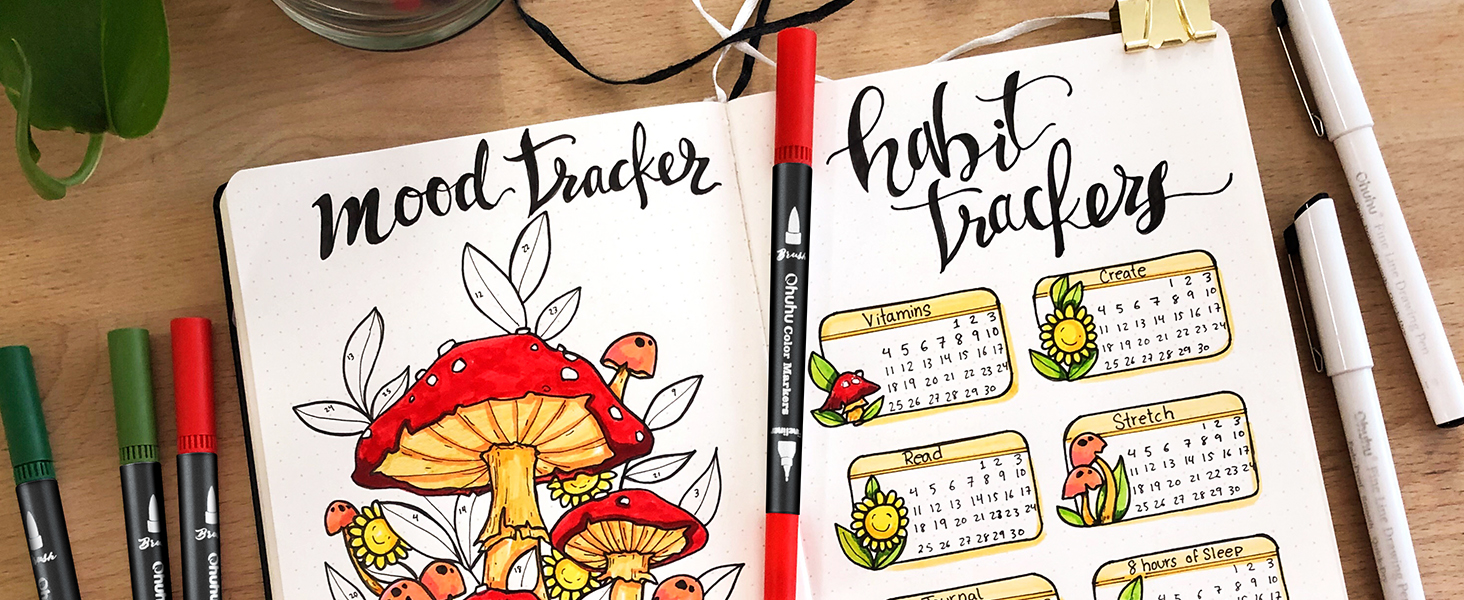 mood tracker
22
12
23
13
24
25
7
21
3
4
19
18
20
habit
trackers
Vitamins
1 2 3
4 5 6 7 8 9 10
11 12 13 14 15 16 17
18 19 20 21 22 23 24
25 26 27 28 29 30
Create
1 2 3
4 5 6 7 8 9 10
11 12 13 14 15 16 17
18 19 20 21 22 23 24
25 26 27 28 29 30
Read
1 2 3
4 5 6 7 8 9 10
11 12 13 14 15 16 17
18 19 20 21 22 23 24
25 26 27 28 29 30
Stretch
1 2 3
4 5 6 7 8 9 10
11 12 13 14 15 16 17
18 19 20 21 22 23 24
25 26 27 28 29 30
Journal
8 hours of Sleep
1 2 3
8 9 10
Brush
Ohuhu Color Markers
Fineliner
Ohuhu Fine Line Drawing Pen
Ohuhu Fine Line Drawing Pen
Brush
Ohuhu